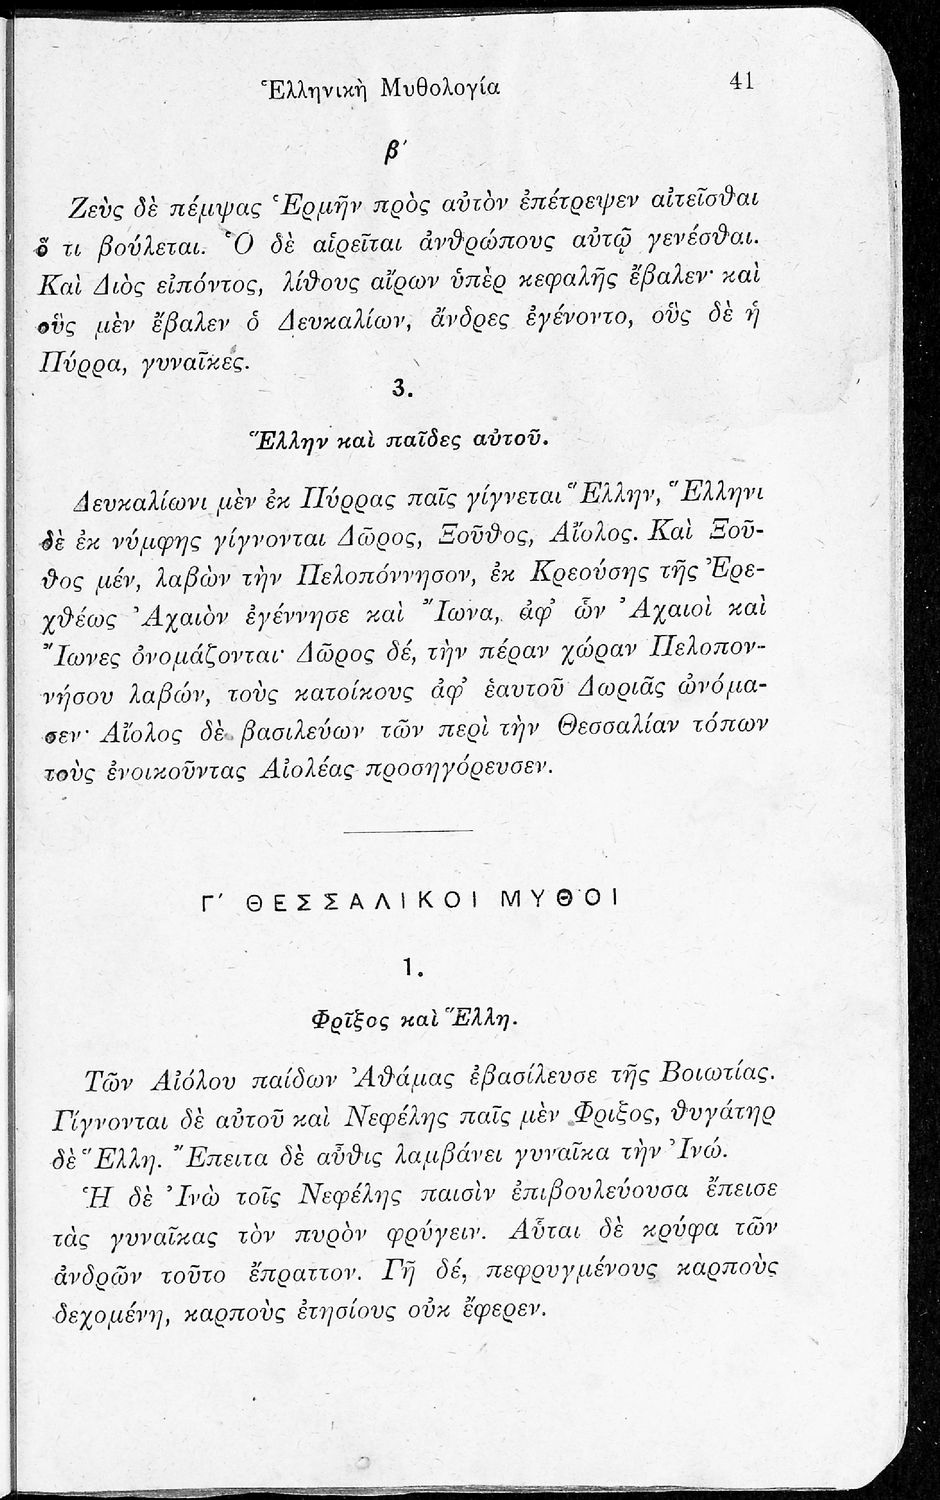 Ἑλληνικὴ Μυθολογία 41
β΄
Ζεὺς δὲ πέμψας Ἑρμῆν πρὸς αὐτὸν ἐπέτρεψεν αἰτεῖσθαι
ὅ τι βούλεται. Ὁ δὲ αἱρεῖται ἀνθρώπους αὐτῷ γενέσθαι.
Καὶ Διὸς εἰπόντος, λίθους αἴρων ὑπὲρ κεφαλῆς ἔβαλεν· καὶ
οὓς μὲν ἔβαλεν ὁ Δευκαλίων, ἄνδρες ἐγένοντο, οὓς δὲ ἡ
Πύρρα, γυναῖκες.
3.
Ἕλλην καὶ παῖδες αὐτοῦ.
Δευκαλίωνι μὲν ἐκ Πύρρας παῖς γίγνεται Ἕλλην, Ἕλληνι
δὲ ἐκ νύμφης γίγνονται Δῶρος, Ξοῦθος, Αἴολος. Καὶ Ξοῦ-
θος μέν, λαβὼν τὴν Πελοπόννησον, ἐκ Κρεούσης τῆς Ἐρε-
χθέως Ἀχαιὸν ἐγέννησε καὶ Ἴωνα, ἀφ’ ὧν Ἀχαιοὶ καὶ
Ἴωνες ὀνομάζονται· Δῶρος δέ, τὴν πέραν χώραν Πελοπον-
νήσου λαβών, τοὺς κατοίκους ἀφ’ ἑαυτοῦ Δωριᾶς ὠνόμα-
σεν· Αἴολος δὲ βασιλεύων τῶν περὶ τὴν Θεσσαλίαν τόπων
τοὺς ἐνοικοῦντας Αἰολέας προσηγόρευσεν.
Γ΄ ΘΕΣΣΑΛΙΚΟΙ ΜΥΘΟΙ
1.
Φρῖξος καὶ Ἕλλη.
Τῶν Αἰόλου παίδων Ἀθάμας ἐβασίλευσε τῆς Βοιωτίας.
Γίγνονται δὲ αὐτοῦ καὶ Νεφέλης παῖς μὲν Φριξος, θυγάτηρ
δὲ Ἕλλη. Ἔπειτα δὲ αὖθις λαμβάνει γυναῖκα τὴν Ἰνώ.
Ἡ δὲ Ἰνὼ τοῖς Νεφέλης παισὶν ἐπιβουλεύουσα ἔπεισε
τὰς γυναῖκας τὸν πυρὸν φρύγειν. Αὗται δὲ κρύφα τῶν
ἀνδρῶν τοῦτο ἔπραττον. Γῆ δέ, πεφρυγμένους καρποὺς
δεχομένη, καρποὺς ἐτησίους οὐκ ἔφερεν.